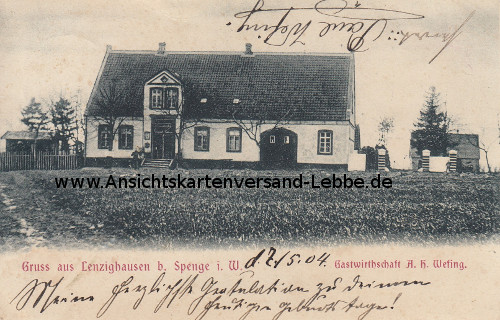 Paul Wefing
www.Ansichtskartenversand-Lebbe.de
Gruss aus Lenzighausen b. Spenge i. W. 12/5.04. Gastwirthschaft A. H. Wefing.
Meine herzlichste Gratulation zu deinem
heutigen Geburtstage!